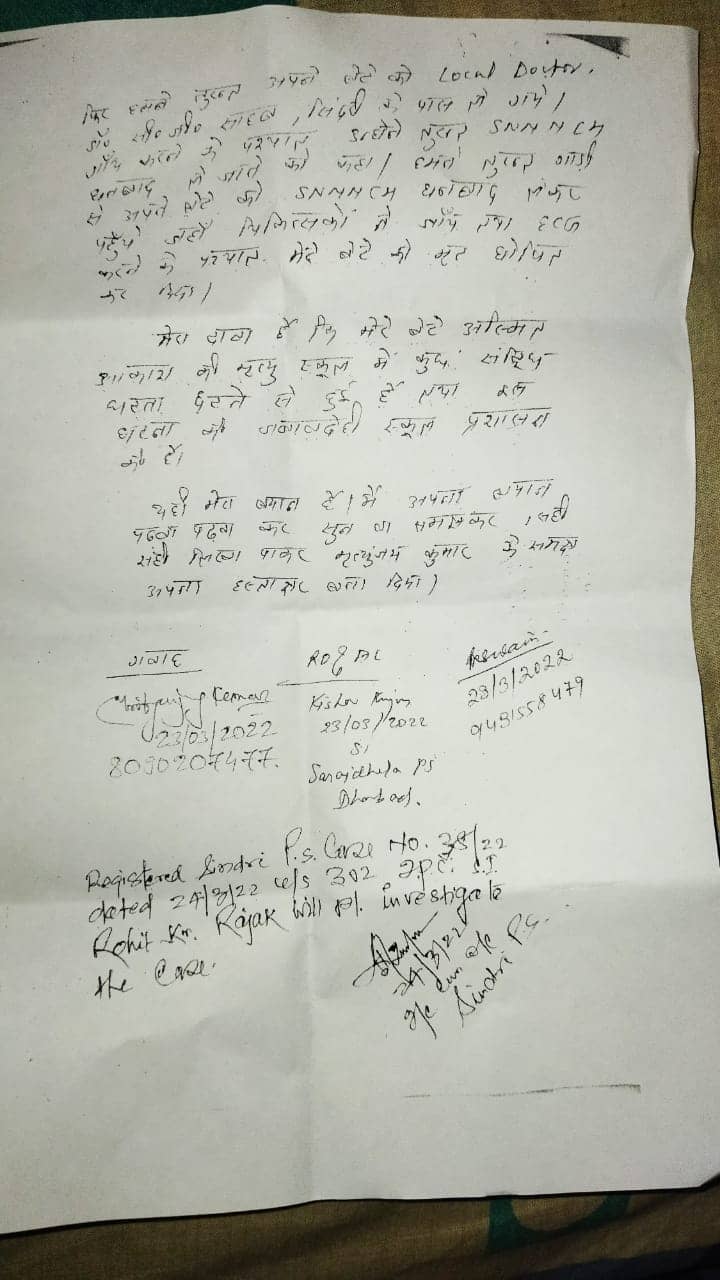 फिर हमने तुरन्त अपने बेटे को Local Doctor,
डॉ० सी० जी० साहब, सिंदरी के पास ले गये।
जाँच करने के पश्चात उन्होंने तुरन्त SNMMCH
धनबाद ले जाने को कहा। हमने तुरन्त गाड़ी
से अपने बेटे को SNMMCH धनबाद लेकर
पहुँचे जहाँ चिकित्सकों ने जाँच तथा ECG
करने के पश्चात मेरे बेटे को मृत घोषित
कर दिया।
मेरा दावा है कि मेरे बेटे अस्मित
आकाश की मृत्यु स्कूल में कुछ संदिग्ध
घटना घटने से हुई है तथा इस
घटना की जवाबदेही स्कूल प्रशासन
की है।
यही मेरा बयान है। मैं अपना बयान
पढ़वा कर सुन वा समझकर, सही
सही लिखा पाकर मृत्युंजय कुमार के समक्ष
अपना हस्ताक्षर बना दिया।
गवाह
RO & AC
Kumar
23/03/2022
8090207477.
Kishor Kumar
23/03/2022
SI
Saraidhela PS
Dhanbad.
23/3/2022
9431558479
Registered Sindri P.S. Case No. 38/22
dated 24/3/22 u/s 302 IPC. S.I.
Rohit Kr. Rajak will pl. investigate
the Case.
24/3/22
Sindri P.S.